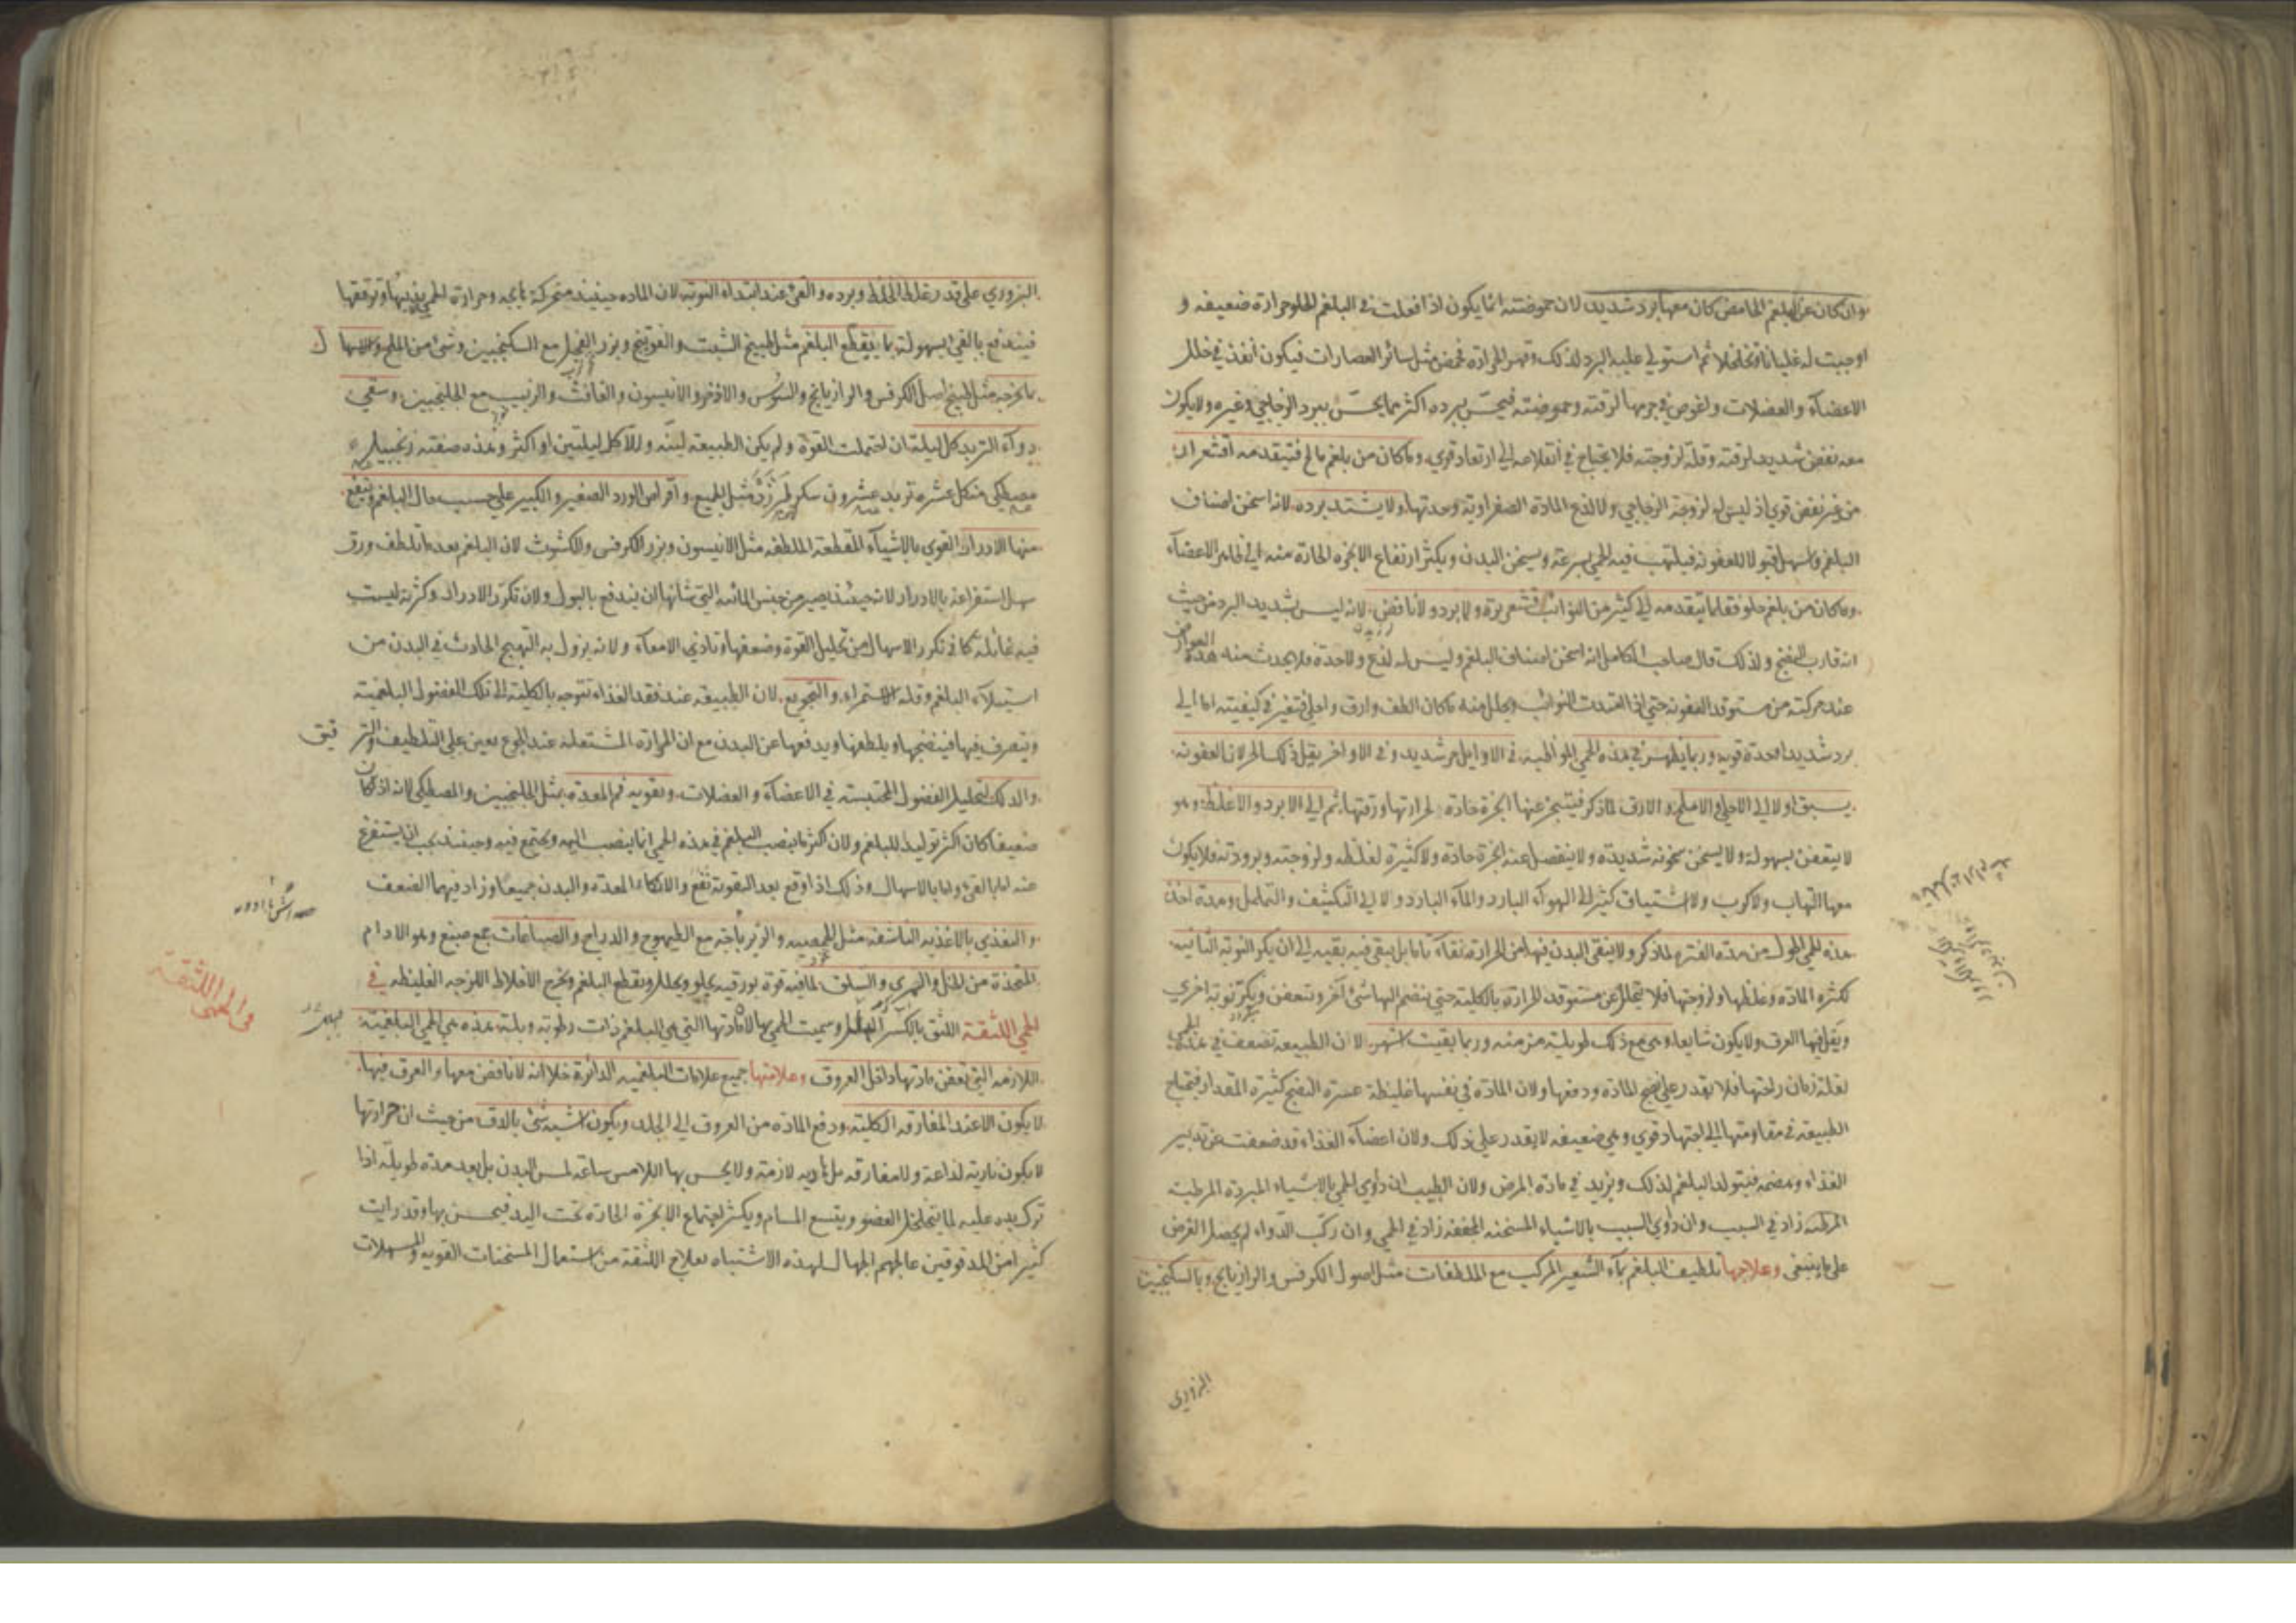 وان كان عن البلغم الحامض كان معها برد شديد لان حموضته انما يكون اذا فعلت في البلغم الحلو حرارة ضعيفه و
اوجبت له غليانا وتخلخلا ثم استولى عليه البرد لذلك وقهر الحرارة فحمض مثل سائر العصارات فيكون انفذ في خلل
الاعضاء والعضلات واغوص في جرمها لرقته وحموضته فيحس ببرده اكثر مما يحس ببرد الزجاجي وغيره ولا يكون
معه نفض شديد لرقته وقلة لزوجته فلا يحتاج في انقلاعه الى ارتعاد قوي وما كان من بلغم مالح فتتقدمه اقشعرار
من غير نفض قوي اذ ليس له لزوجة الزجاجي ولا لذع المادة الصفراوية وحدتها ولا يشتد برده لانه اسخن اصناف
البلغم واسهل قبولا للعفونة فيلتهب فيه الحمى بسرعة ويسخن البدن ويكثر ارتفاع الابخرة الحارة منه الى ظاهر الاعضاء
وما كان من بلغم حلو فقلما يتقدمه في كثير من النوائب قشعريرة ولا برد ولا نافض لانه ليس بشديد البرد من حيث
انه قارب النضج ولذلك قال صاحب الكامل انه اسخن اصناف البلغم وليس له لذع ولا حدة فلا يحدث منه هذه العوارض
عند حركته من مستوقد العفونة حتى اذا امتدت النوائب وتحلل منه ما كان الطف وارق واحلى فتغير في كيفيته اما الى
برد شديد او حدة قوية وربما يظهر في هذه الحمى المواظبة في الاوايل حر شديد وفي الاواخر يقل ذلك الحر لان العفونة
يسبق اولا الى الاحلى والاملح والارق لما ذكر فيتبخر عنها ابخرة حادة لحرارتها ورقتها ثم الى الابرد والاغلظ وهو
لا يتعفن بسهولة ولا يسخن سخونة شديدة ولا ينفصل عنه ابخرة حادة ولا كثيرة لغلظه ولزوجته وبرودته فلا يكون
معها التهاب ولا كرب ولا اشتياق كثير الى الهواء البارد والماء البارد ولا الى التكشف والتململ ومدة اخذ
هذه الحمى اطول من مدة الفترة لما ذكر ولا ينقى البدن فيها من الحرارة نقاء تاما بل يبقى فيه بقية الى ان يكر النوبة الثانية
لكثرة المادة وغلظها ولزوجتها فلا يتحلل عن مستوقد الحرارة بالكلية حتى ينضم اليها شيء آخر وتتعفن ويكر نوبة اخرى
ويقل فيها العرق ولا يكون شايعا وهي مع ذلك طويلة مزمنة وربما بقيت اشهر لان الطبيعة تضعف في هذه الحمى
لقلة زمان راحتها فلا يقدر على نضج المادة ودفعها ولان المادة في نفسها غليظة عسرة النضج كثيرة المقدار فيحتاج
الطبيعة في مقاومتها الى اجتهاد قوي وهي ضعيفه لا يقدر على ذلك ولان اعضاء الغذاء قد ضعفت عن تدبير
الغذاء وهضمه فيتولد البلغم لذلك ويزيد في مادة المرض ولان الطبيب ان داوى الحمى بالاشياء المبردة المرطبة
زاد في السبب وان داوى السبب بالاشياء المسخنه المجففه زاد في الحمى وان ركب الدواء لم يحصل الغرض
على ما ينبغي وعلاجها تلطيف البلغم بماء الشعير المركب مع الملطفات مثل اصول الكرفس والرازيانج وبالسكنجبين
البزوري
البزوري على قدر غلظ الخلط وبرده والقيء عند ابتداء النوبة لان المادة حينئذ متحركة هايجة وحرارة الحمى يذيبها وترققها
فيندفع بالقيء بسهولة بما يقطع البلغم مثل طبيخ الشبت والفوتنج وبزر الفجل مع السكنجبين وشيء من الملح والاسهال
بما يخرجه مثل طبيخ اصل الكرفس والرازيانج والسوس والاذخر والانيسون والغافث والزبيب مع الجلنجبين وسقي
دواء التربد كل ليلة ان احتملت القوة ولم يكن الطبيعة لينة والا كل ليلتين او اكثر وهذه صفته زنجبيل
مصطكى من كل عشرة تربد عشرون سكر طبرزد مثل الجميع واقراص الورد الصغير والكبير على حسب حال البلغم وينفع
منها الادرار القوي بالاشياء المقطعة الملطفة مثل الانيسون وبزر الكرفس والكشوث لان البلغم بعد ما تلطف ورق
سهل استفراغه بالادرار لانه حينئذ يصير من جنس المائية التي شانها ان يندفع بالبول ولان تكرر الادرار وكثرته ليست
فيه غائلة كما في تكرر الاسهال من تحليل القوة وضعفها وتاذي الامعاء ولانه يزول به التهيج الحادث في البدن من
استيلاء البلغم وقلة الاستمراء والتجويع لان الطبيعة عند فقد الغذاء تتوجه بالكلية الى تلك الفضول البلغمية
ويتصرف فيها فينضجها ويلطفها ويدفعها عن البدن مع ان الحرارة المشتعلة عند الجوع يعين على التلطيف والترقيق
والدلك لتحليل الفضول المحتبسة في الاعضاء والعضلات وتقوية فم المعدة بمثل الجلنجبين والمصطكى لانه اذا كان
ضعيفا كان اكثر توليدا للبلغم ولان اكثر ما ينصب البلغم في هذه الحمى انما ينصب اليه ويجتمع فيه وحينئذ يجب ان يستفرغ
عنه اما بالقيء واما بالاسهال وذلك اذا وقع بعد التقوية نفع والا نكاء المعدة والبدن جميعا وزاد فيهما الضعف
والتغذي بالاغذية الناشفة مثل الحمصية والزيرباجة مع الطيهوج والدراج والصباغات جمع صبغ وهو الادام
المتخذة من الخل والمري والسلق لما فيه قوة بورقية يجلو ويحلل ويقطع البلغم ويخرج الاخلاط اللزجة الغليظة في
الحمى اللثقة اللثق بالكسر البلل وسميت الحمى بها لان مادتها التي هي البلغم ذات رطوبة وبلة هذه هي الحمى البلغمية
اللازمة التي تعفن مادتها داخل العروق وعلامتها جميع علامات البلغمية الدائرة خلا انه لا نافض معها والعرق فيها
لا يكون الا عند المفارقة الكلية ودفع المادة من العروق الى الجلد ويكون اشبه شيء بالدق من حيث ان حرارتها
لا يكون نارية لذاعة ولا مفارقة بل هادية لازمة ولا يحس بها اللامس ساعة لمس البدن بل بعد مدة طويلة اذا
ترك يده عليه لما يتخلخل العضو ويتسع المسام ويكثر اجتماع الابخرة الحارة تحت اليد فيحس بها وقد رايت
كثيرا من المدقوقين عالجهم الجهال لهذه الاشتباه بعلاج اللثقة من استعمال المسخنات القوية والمسهلات
في الحمى اللثقة